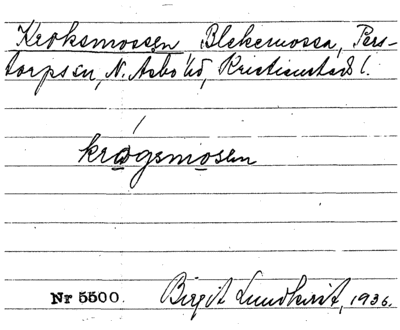 Kroksmossen, Blekemossa, Pers-
torps sn, N. Åsbo hd, Kristianstads l.
krågsmosen
Nr 5500. Birgit Lundkvist, 1936.